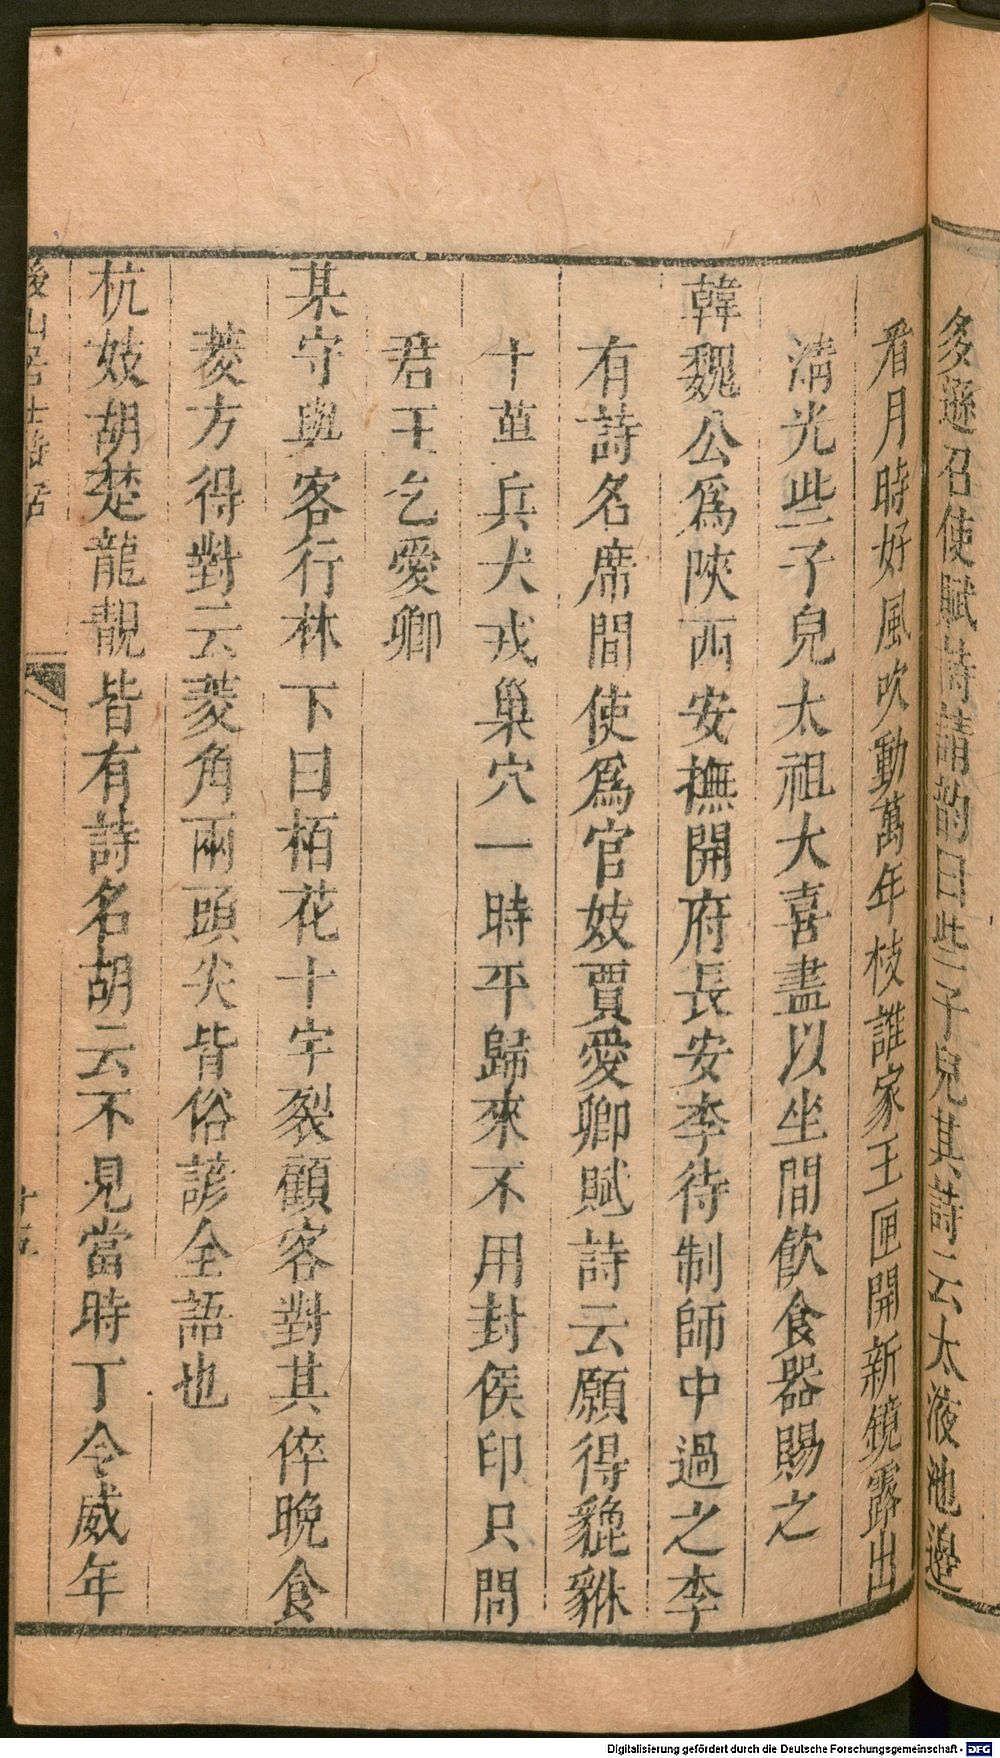 多遜召使賦詩請韵曰些子兒其詩云太液池邉
看月時好風吹動萬年枝誰家玉匣開新鏡露出
清光些子兒太祖大喜盡以坐間飲食器賜之
韓魏公爲陝西安撫開府長安李待制師中過之李
有詩名席間使爲官妓賈愛卿賦詩云願得貔貅
十萬兵犬戎巢穴一時平歸來不用封侯印只問
君王乞愛卿
某守與客行林下曰栢花十字裂願客對其倅晚食
菱方得對云菱角兩頭尖皆俗諺全語也
杭妓胡楚龍靚皆有詩名胡云不見當時丁令威年
後山居士詩話
十五
Digitalisierung gefördert durch die Deutsche Forschungsgemeinschaft - DFG